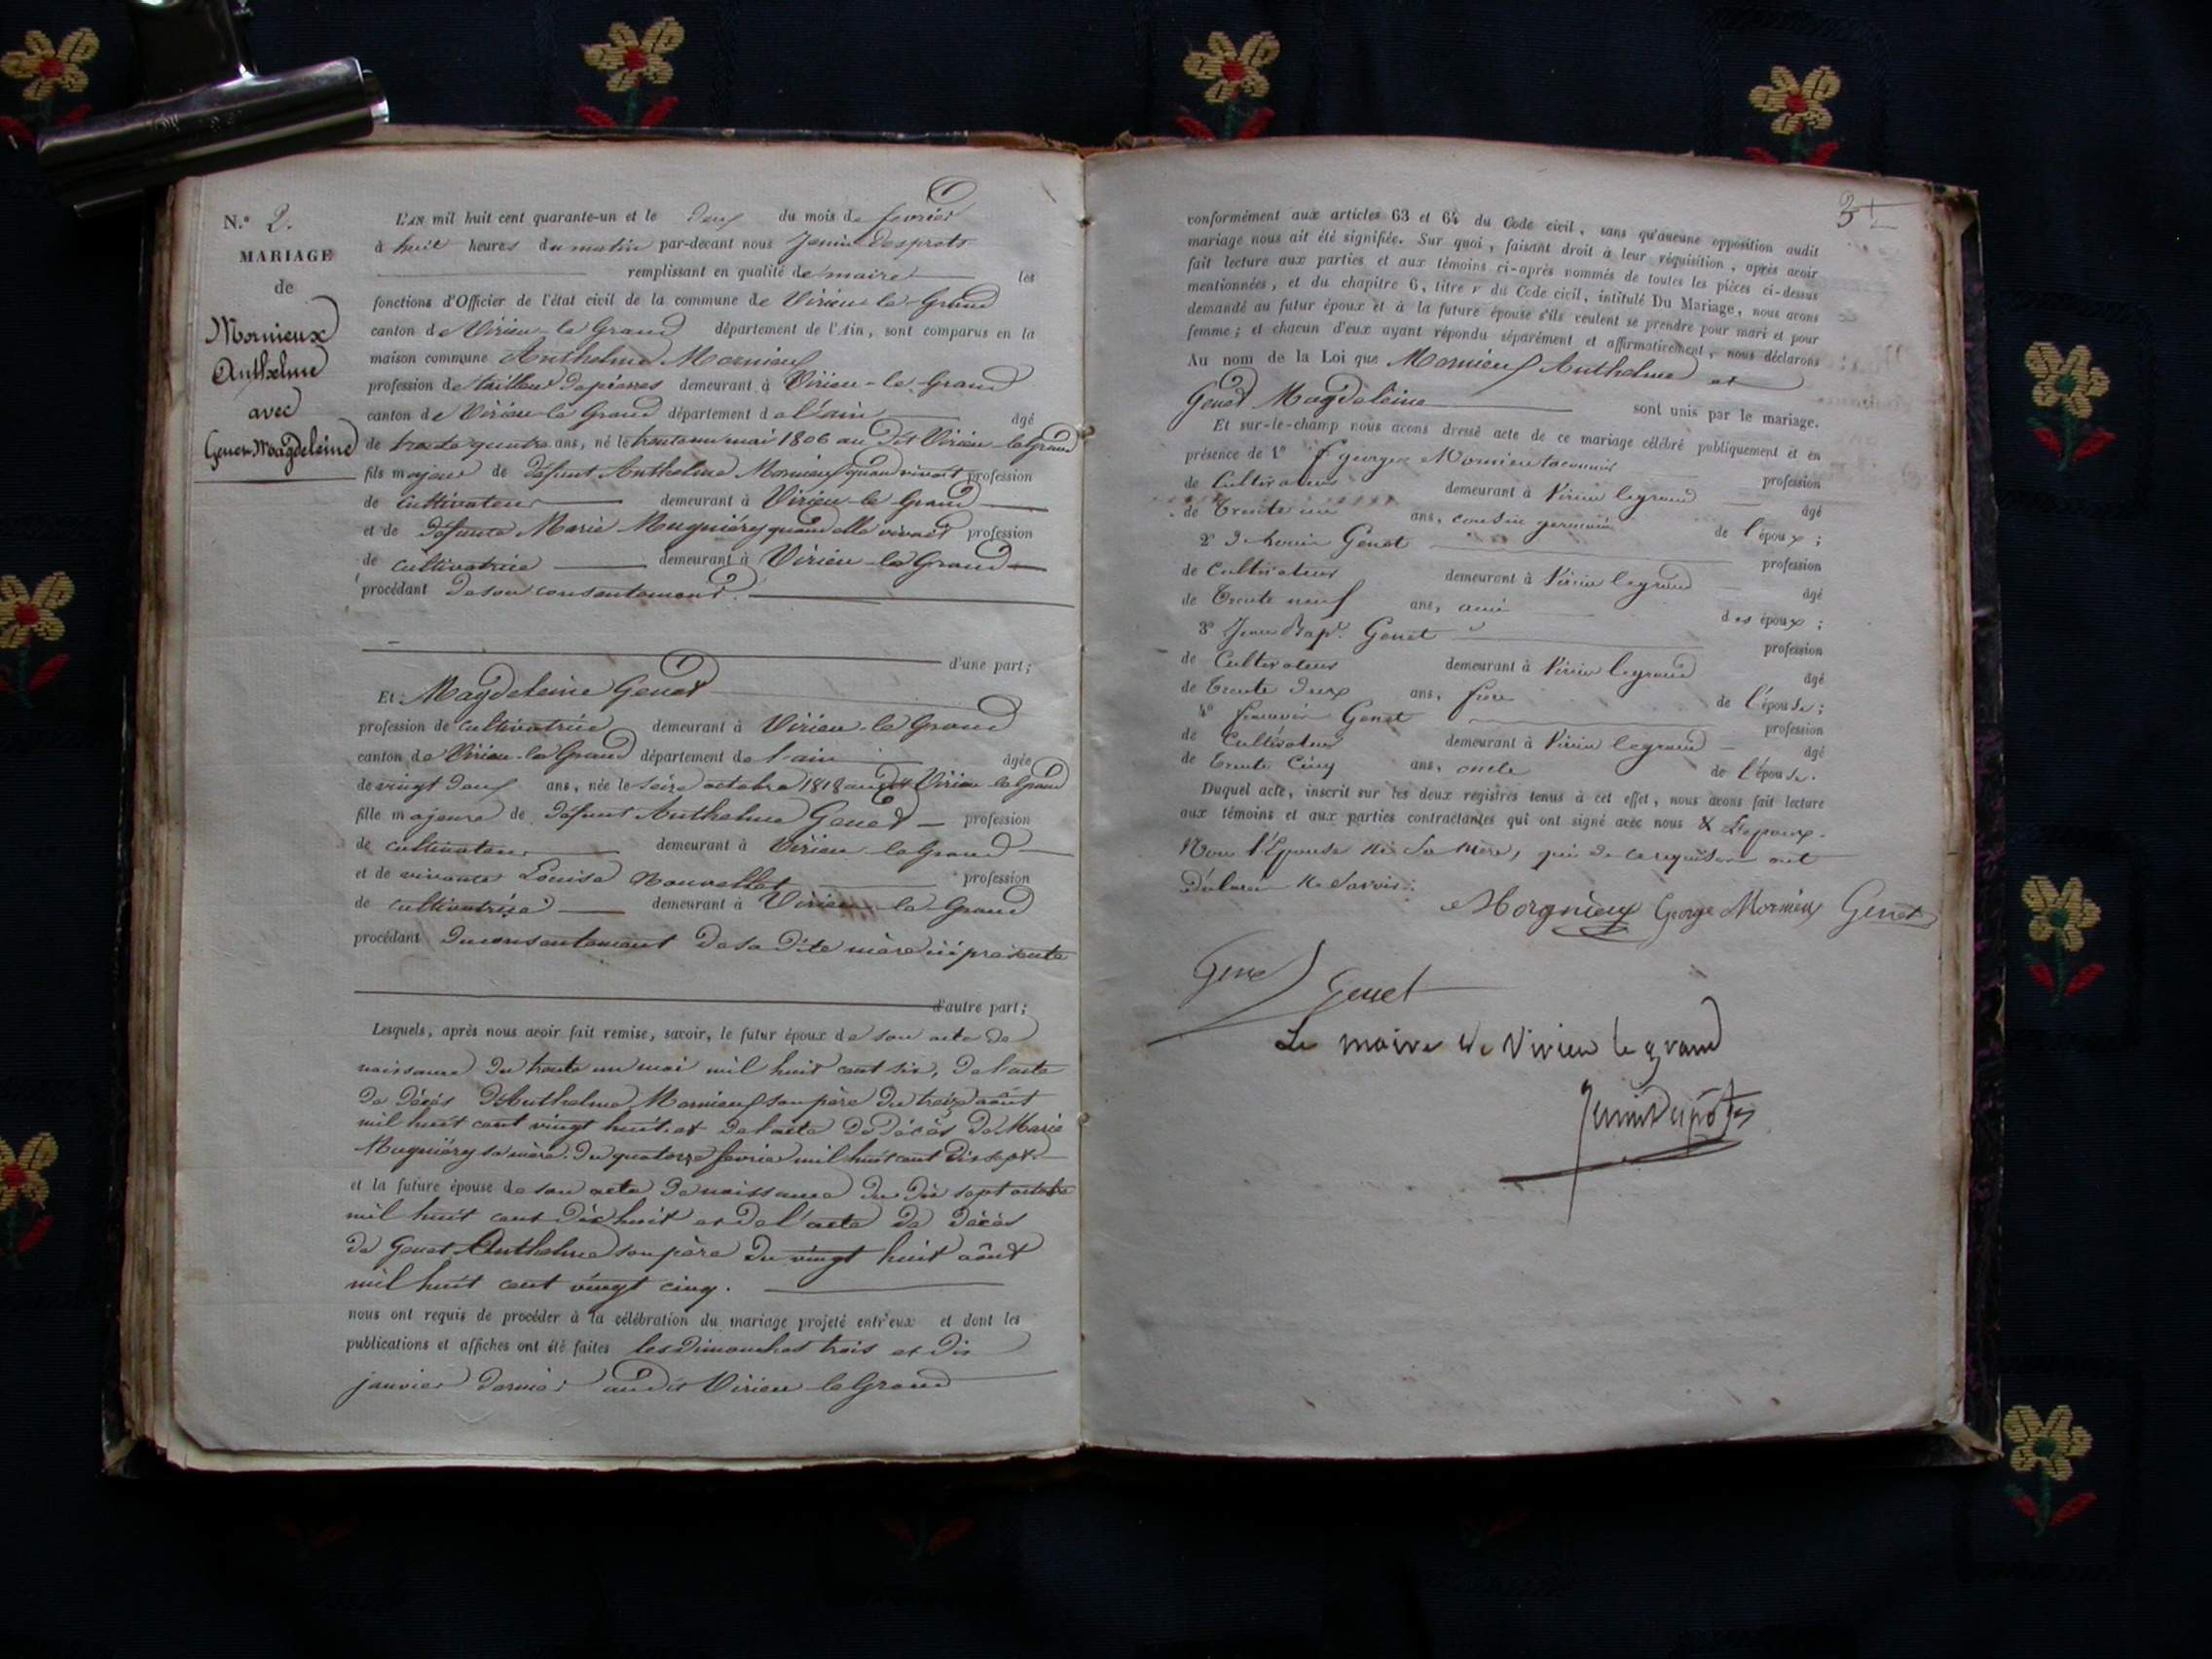 N.° 2.
MARIAGE
de
Mornieux
Anthelme
avec
Genet Magdeleine
L'AN mil huit cent quarante-un et le deux du mois de fevrier
à huit heures du matin par-devant nous Jenin Desprots
remplissant en qualité de maire les
fonctions d'Officier de l'état civil de la commune de Virieu-le-Grand
canton de Virieu-le Grand département de l'Ain, sont comparus en la
maison commune Anthelme Mornieux
profession de tailleur de pierres demeurant à Virieu-le-Grand
canton de Virieu-le Grand département de l'ain âgé
de trente quatre ans, né le trente un mai 1806 au dit Virieu-le Grand
fils majeur de défunt Anthelme Mornieux quand vivait profession
de cultivateur demeurant à Virieu-le-Grand
et de défunte Marie Mugniéry quand elle vivait profession
de cultivatrice demeurant à Virieu-le Grand
procédant de son consentement.
d'une part;
Et Magdeleine Genet
profession de cultivatrice demeurant à Virieu-le Grand
canton de Virieu-le Grand département de l'ain âgée
de vingt deux ans, née le seize octobre 1818 au dit Virieu le Grand
fille majeure de défunt Anthelme Genet profession
de cultivateur demeurant à Virieu-le Grand
et de vivante Louise profession
de cultivatrice demeurant à Virieu-le Grand
procédant du consentement de sa dite mère ici présente
d'autre part;
Lesquels, après nous avoir fait remise, savoir, le futur époux de son acte de
naissance du trente un mai mil huit cent six, de l'acte
de décès d'Anthelme Mornieux son père du treize août
mil huit cent vingt huit et de l'acte de décès de Marie
Mugniéry sa mère du quatorze fevrier mil huit cent dix sept.
et la future épouse de son acte de naissance du dix sept octobre
mil huit cent dix huit et de l'acte de décès
de Genet Anthelme son père du vingt huit août
mil huit cent vingt cinq.
nous ont requis de procéder à la célébration du mariage projeté entr'eux et dont les
publications et affiches ont été faites les dimanches trois et dix
janvier dernier audit Virieu-le Grand
conformément aux articles 63 et 64 du Code civil, sans qu'aucune opposition audit
mariage nous ait été signifiée. Sur quoi, faisant droit à leur réquisition, après avoir
fait lecture aux parties et aux témoins ci-après nommés de toutes les pièces ci-dessus
mentionnées, et du chapitre 6, titre v du Code civil, intitulé Du Mariage, nous avons
demandé au futur époux et à la future épouse s'ils veulent se prendre pour mari et pour
femme; et chacun d'eux ayant répondu séparément et affirmativement, nous déclarons
Au nom de la Loi que Mornieux Anthelme et
Genet Magdeleine sont unis par le mariage.
Et sur-le-champ nous avons dressé acte de ce mariage célébré publiquement et en
présence de 1° georges Mornieux profession
de Cultivateur demeurant à Virieu legrand âgé
de Trente un ans, cousin germain de l'époux;
2° Genet profession
de Cultivateur demeurant à Virieu legrand âgé
de Trente neuf ans, ami des époux;
3° Jean Bapt. Genet profession
de Cultivateur demeurant à Virieu legrand âgé
de Trente deux ans, frère de l'épouse;
4° Genet profession
de Cultivateur demeurant à Virieu legrand âgé
de Trente Cinq ans, oncle de l'épouse.
Duquel acte, inscrit sur les deux registres tenus à cet effet, nous avons fait lecture
aux témoins et aux parties contractantes qui ont signé avec nous & L'époux.
Non l'Épouse ni Sa mère, qui de ce requises ont
déclaré ne Savoir.
Morgnieux George Mornieux Genet
Genet
Genet
Le maire de Virieu le grand
Jenin Desprots